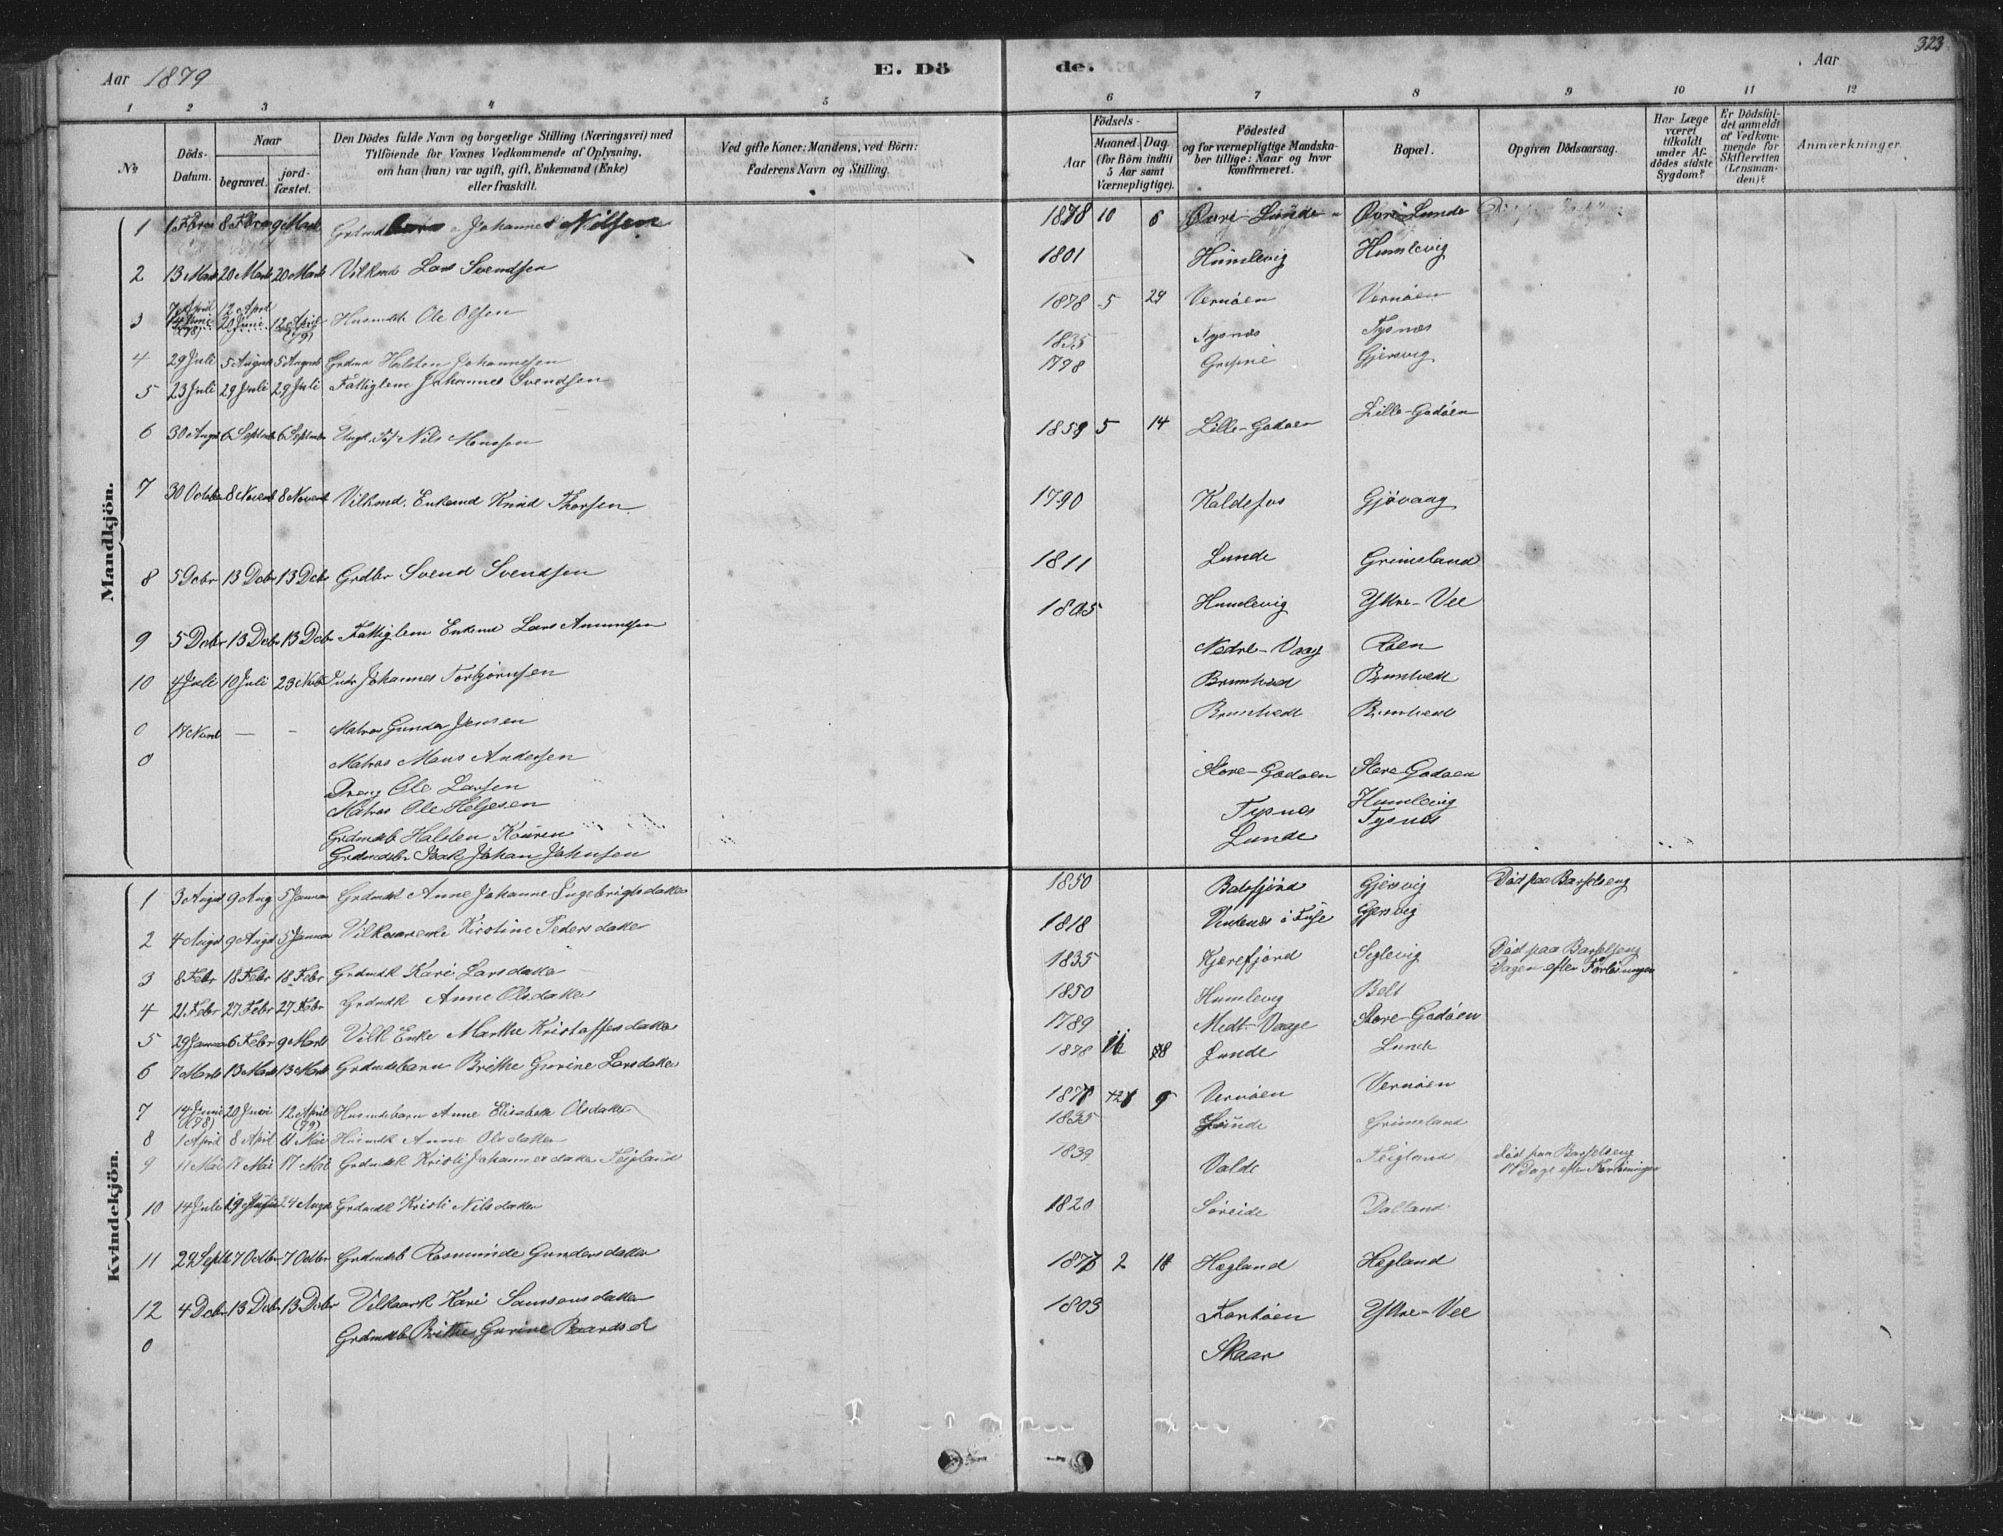 Aar 1879
E. Dö
de.
. Aar
323
1 2 3 4 5 6 7 8 9 10 11 12
No
Döds-Datum.
Naar
begravet. jord-fæstet.
Den Dödes fulde Navn og borgerlige Stilling (Næringsvei) med
Tilföiende for Voxnes Vedkommende af Oplysning,
om han (hun) var ugift, gift, Enkemand (Enke)
eller fraskilt.
Ved gifte Koner: Mandens, ved Börn:
Faderens Navn og Stilling.
Födsels-
Aar
Maaned. Dag
(for Börn indtil
5 Aar samt
Værnepligtige).
Födested
og for værnepligtige Mandska-
ber tillige: Naar og hvor
konfirmeret.
Bopæl.
Opgiven Dödsaarsag.
Har Læge
været
tilkaldt
under Af-
dödes sidste
Sygdom?
Er Dödsfal-
det anmeldt
af Vedkom-
mende for
Skifteretten
(Lensman-
den)?
Anmærkninger.
Mandkjön.
1 1 Febr 8 Febr 9 Marts Johannes Nilsen 1878 10 6 Övre-Lunde Övre-Lunde
2 13 Marts 20 Marts 20 Marts Vilkmd Lars Svendsen 1801 Humlevig Humlevig
7 April 12 April
3 14 Juni (78) 20 Juni 12 April (79) Ole Olsen 1878 5 29 Vernöen Vernöen
4 29 Juli 5 August 5 August Halsten Johannesen 1835 Tysnæs Tysnæs
5 23 Juli 29 Juli 29 Juli Fattiglem Johannes Svendsen 1798 Gjersvig
6 30 Augst 6 Septmbr 6 Septmbr Nils Monsen 1859 5 14 Lille-Godöen Lille-Godöen
7 30 Octobr 8 Novemb 8 Novemb Vilkmd. Enkemd Knud Thorsen 1790 Kaldefos Gjövaag
8 5 Decbr 13 Decbr 13 Decbr Grdbr Svend Svendsen 1811 Lunde Grimsland
9 5 Decbr 13 Decbr 13 Decbr Fattiglem Enkemd Lars Amundsen 1805 Humlevig Yttre-Vee
10 4 Juli 10 Juli 23 Johannes Torbjörnsen Nedre-Vaage Röen
0 17 Novb — - Matros Gunder Jensen Brunhvedt Brunhvedt
0 Matros Mons Andersen Brunhvedt Brunhvedt
Dreng Ole Larsen Store-Godöen Store-Godöen
Matros Ole Helgesen Humlevig
Halsten Tysnæs Tysnæs
Isak Johan Johnsen Lunde
Kvindekjön.
1 3 Augst 9 Aug 5 Januar Anne Johanne Ingebrigtsdatter 1850 Balsfjord Gjersvig Död paa Barselseng
2 4 Augst 9 Augst 5 Januar Kirstine Pedersdatter 1818 i Fuse Gjersvig
3 8 Febr 18 Febr 18 Febr Grdmdk Kari Larsdatter 1835 Kjærefjord Seglevig Död paa Barselseng
Dagen efter Forlösningen
4 21 Febr 27 Febr 27 Febr Grdmdk Anne Olsdatter 1850 Humlevig Belt
5 29 Januar 6 Febr 9 Marts Vilk Enke Marthe Kristoffersdatter 1789 Midt-Vaage Store-Godöen
6 7 Marts 13 Marts 13 Marts Grdmdsbarn Brithe Gurine Larsdatter 1878 Lunde Lunde
7 14 Juni (78) 20 Juni 12 April (79) Husmdsbarn Anne Elisabeth Olsdatter 1878 9 Vernöen Vernöen
8 1 April 8 April 11 Mai Husmdk Anne Olsdatter 1835 Lunde Grimsland
9 11 Mai 17 Mai 17 Mai Grdmdk Kristi Johannesdatter Teigland 1839 Valde Teigland Död paa Barselseng
17 Dage efter Forlösningen
10 14 Juli 19 24 Augst Grdmdk Kristi Nilsdatter 1820 Söreide Dalland
11 29 Septb 7 Octbr 7 Octbr Grdmdsb Rasminde Gundersdatter 187 2 18 Hegland Hegland
12 4 Decbr 13 Decbr 13 Decbr Kari Samsonsdatter 1803 Yttre-Vee
0 Grdmdsb Brithe Gurine Baardsd Skaar